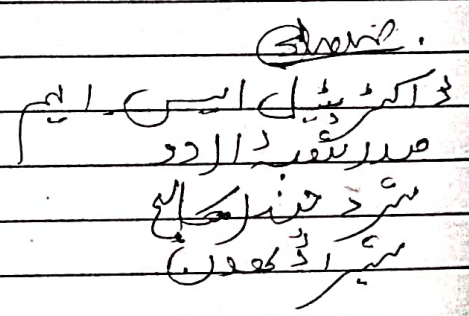 ڈاکٹر پٹیل ایس. ایم
صدر شعبہ اردو
شرد چندر کالج
شیراڈھون